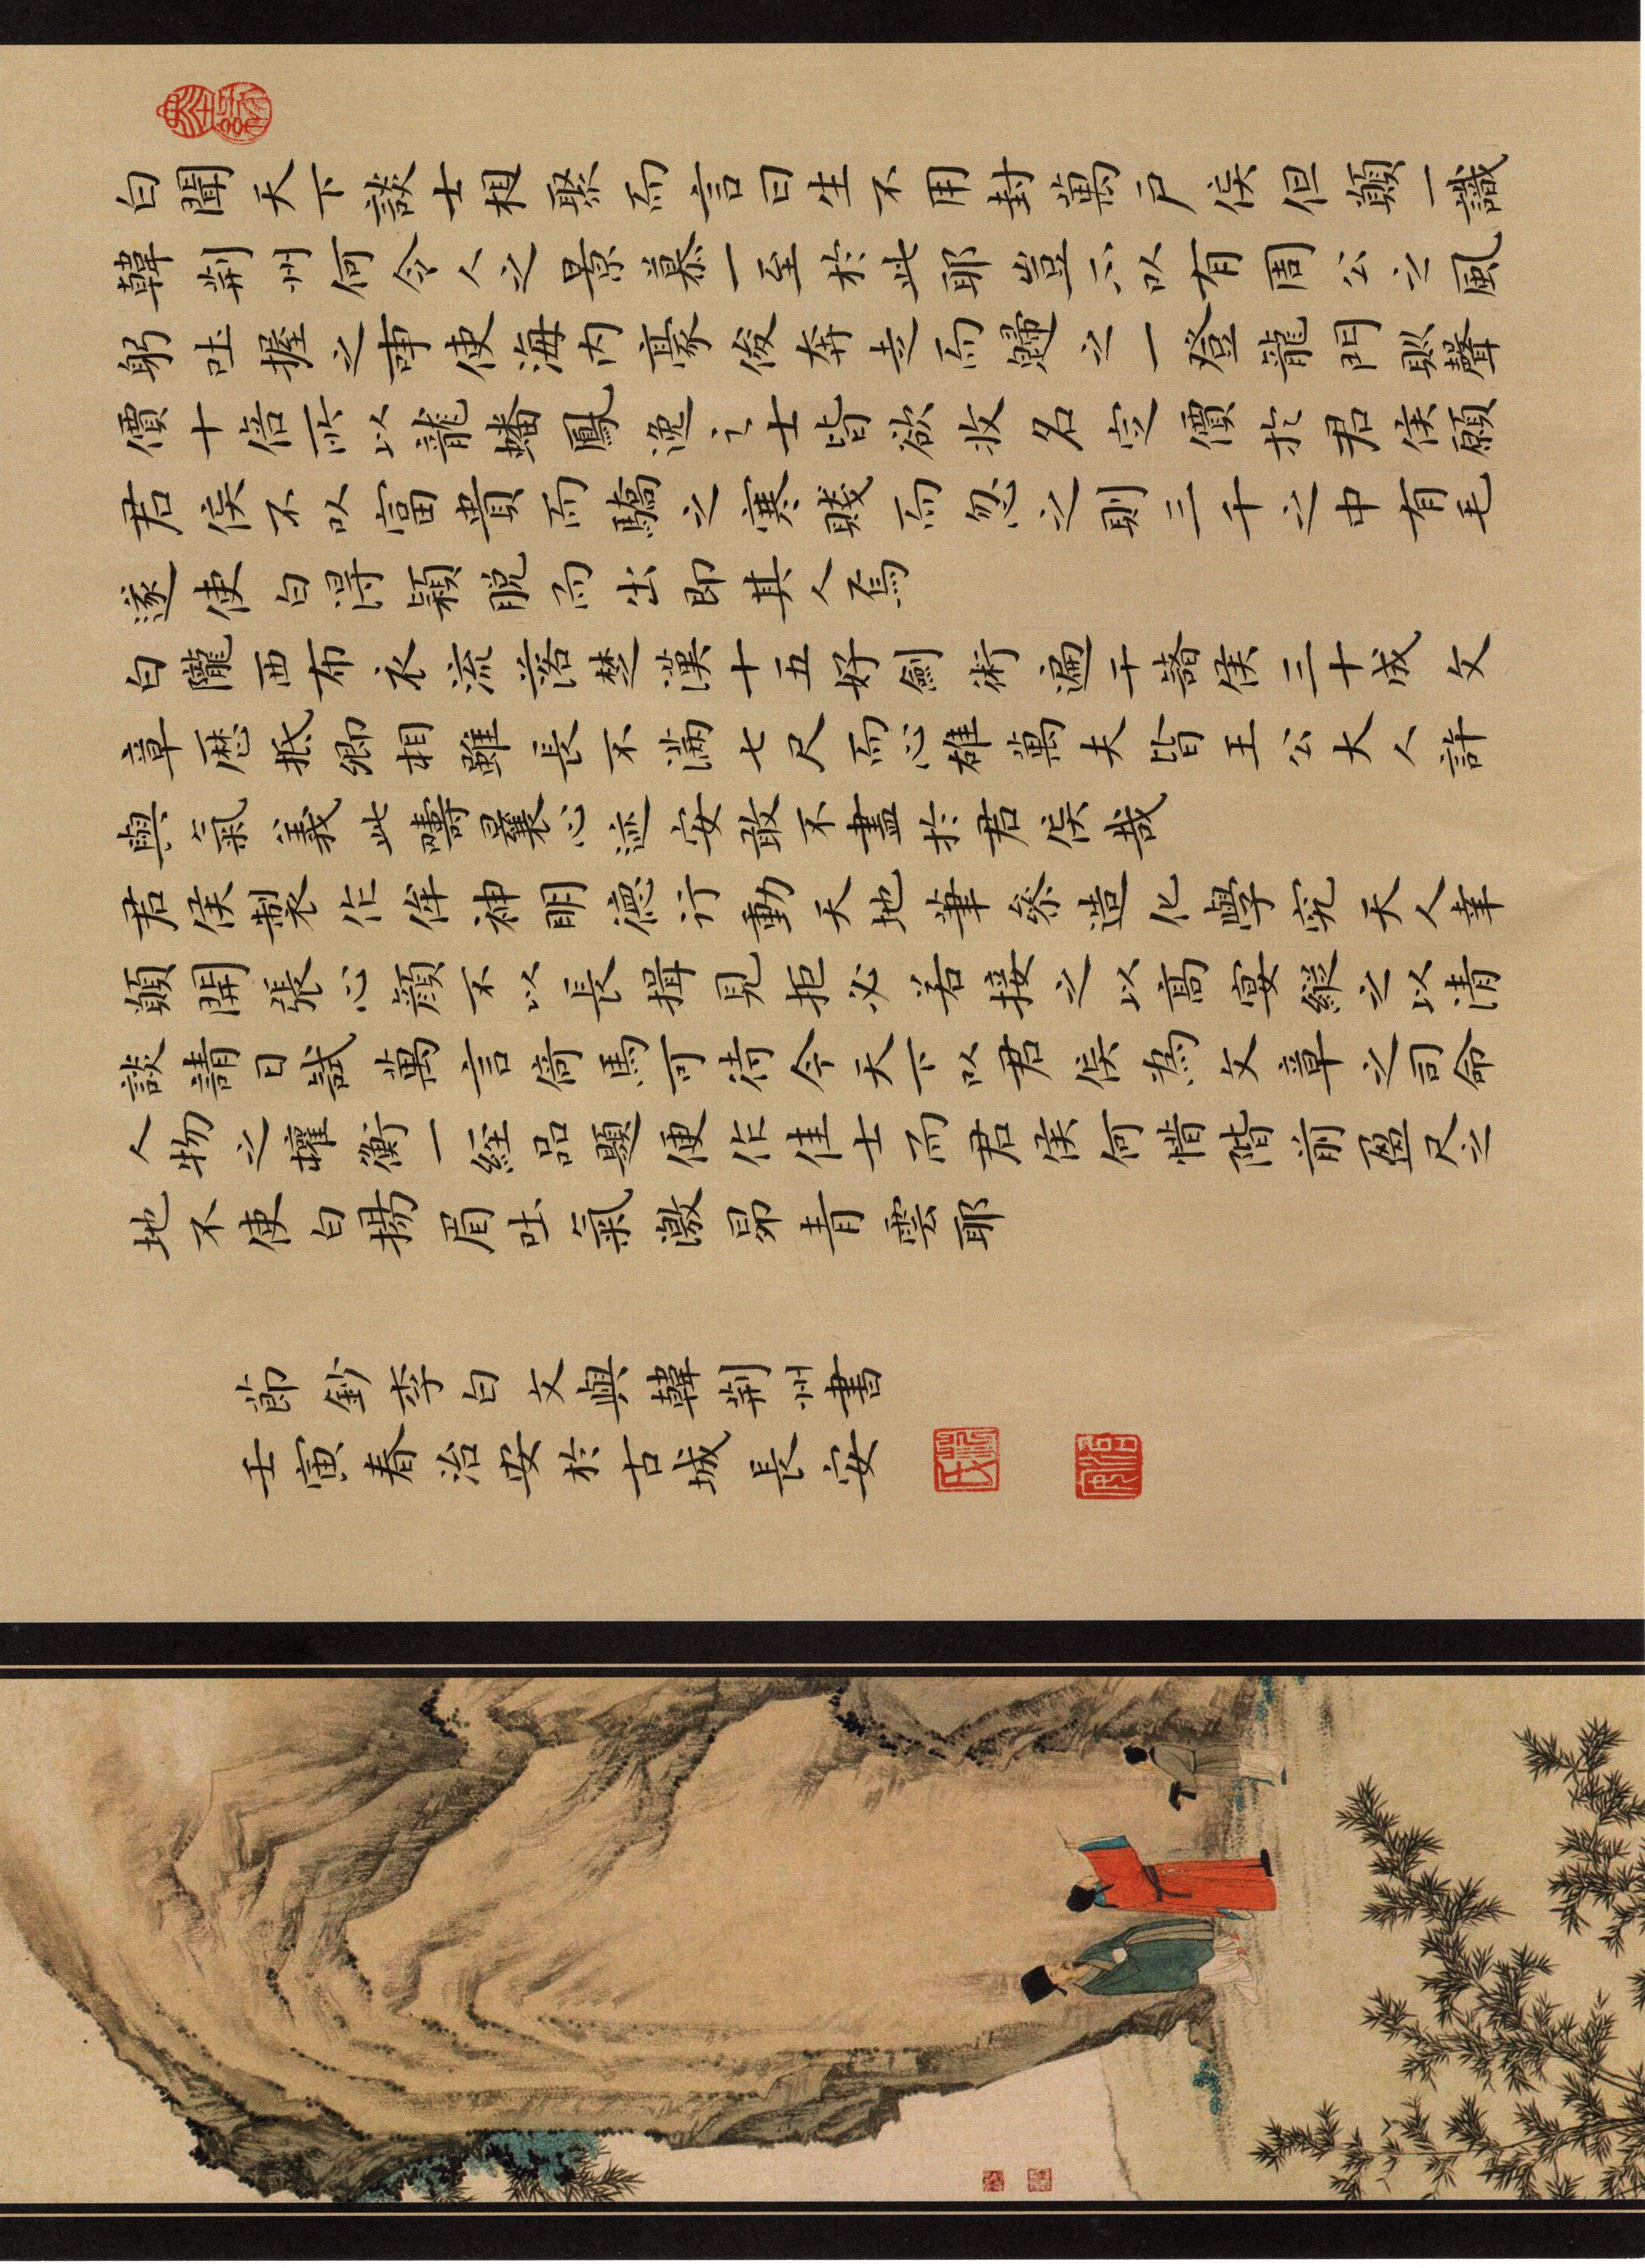 白聞天下談士相聚而言曰生不用封萬戶侯但願一識
韓荆州何令人之景慕一至於此耶豈不以有周公之風
躬吐握之事使海內豪俊奔走而歸之一登龍門則聲
價十倍所以龍蟠鳳逸之士皆欲收名定價於君侯願
君侯不以富貴而驕之寒賤而忽之則三千之中有毛
遂使白得穎脫而出即其人焉
白隴西布衣流落楚漢十五好劍術遍干諸侯三十成文
章歷抵卿相雖長不滿七尺而心雄萬夫皆王公大人許
與氣義此疇曩心迹安敢不盡於君侯哉
君侯製作侔神明德行動天地筆參造化學究天人幸
願開張心顏不以長揖見拒必若接之以高宴縱之以清
談請日試萬言倚馬可待今天下以君侯為文章之司命
人物之權衡一經品題便作佳士而君侯何惜階前盈尺之
地不使白揚眉吐氣激昂青雲耶
節鈔李白文與韓荆州書
壬寅春治安於古城長安